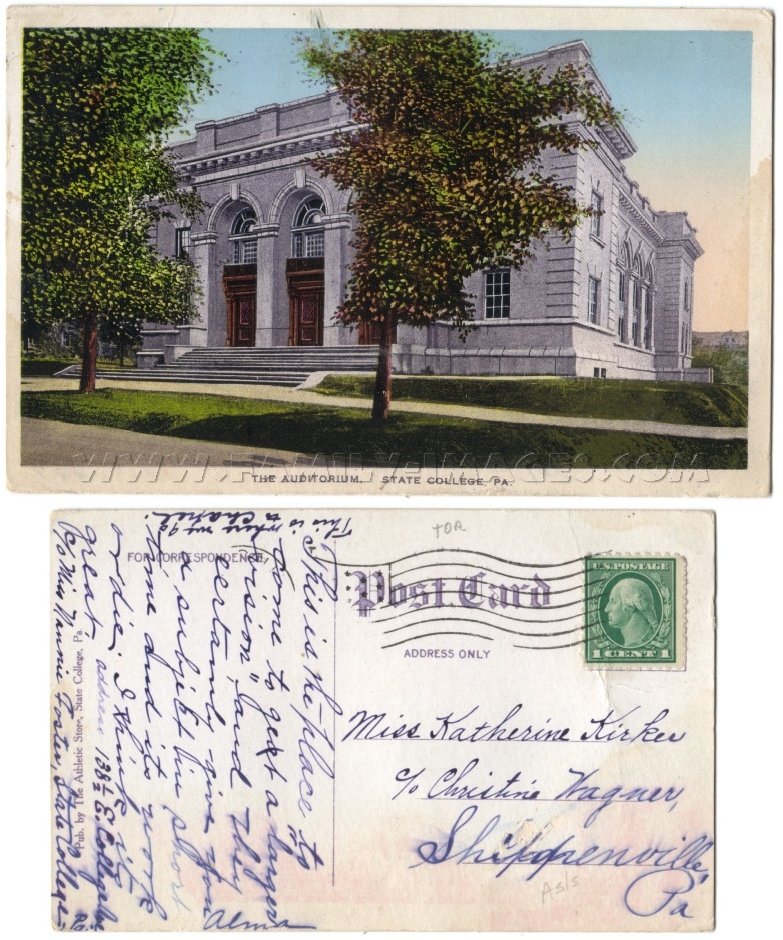 WWW.FAMILY-IMAGES.COM
THE AUDITORIUM. STATE COLLEGE, PA.
TOR
FOR CORRESPONDENCE
Post Card
ADDRESS ONLY
U.S. POSTAGE
1 CENT 1
Miss Katherine Kirker
c/o Christine Wagner,
Shippenville,
Pa
As Is
This is
where we go
to Chapel.
This is the place to
come to get a larger
vision" and they
certainly give you
the subject in short
time and its work
or die, I think its
great
Alma
address 138½ E. College
c/o Miss Nannie Foster, State College
Pub. by The Athletic Store, State College, Pa.